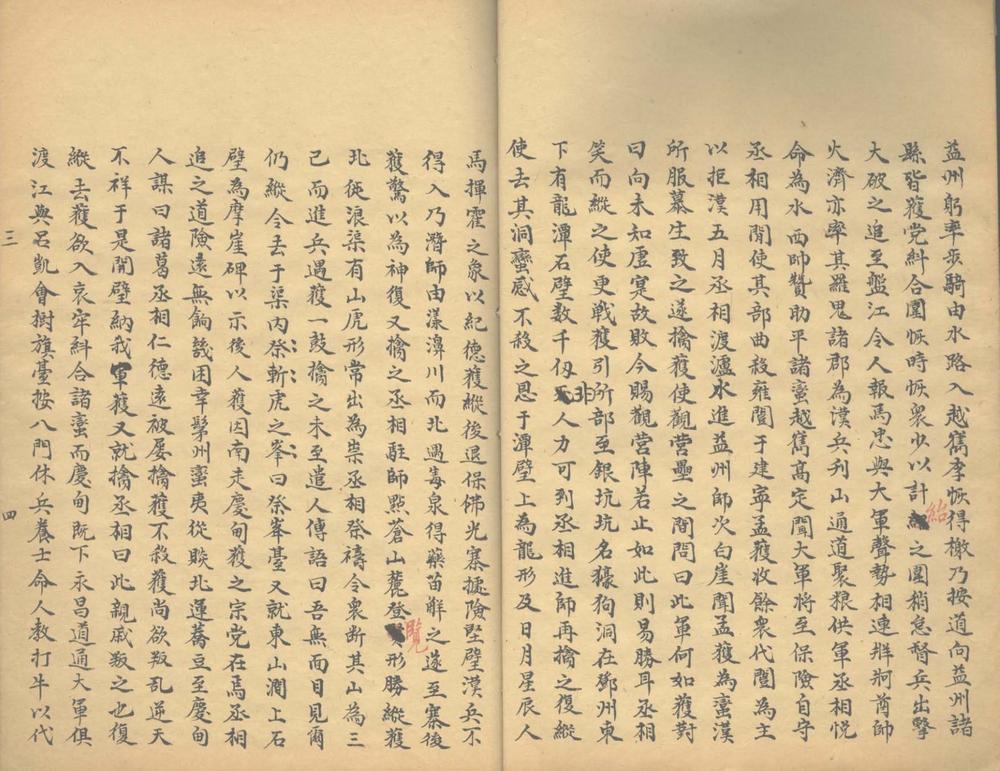 益州躬率步騎由水路入越嶲李恢得檄乃按道向益州諸
縣皆獲党糾合圍恢時恢衆少以計紿之圍稍怠督兵出擊
大破之追至盤江令人報馬忠與大軍聲勢相連牂牁酋帥
火濟亦率其羅鬼諸郡為漢兵刋山通道聚粮供軍丞相悦
命為水西帥贊助平諸蠻越嶲高定聞大軍将至保險自守
丞相用間使其部曲殺雍闓于建寧孟獲收餘衆代闓為主
以拒漢五月丞相渡瀘水進益州師次白崖聞孟獲為蠻漢
所服募生致之遂擒獲使觀營壘之間問曰此軍何如獲對
曰向未知虚寔故敗今賜觀營陣若止如此則易勝耳丞相
笑而縱之使更戰獲引所部至銀坑坑名豲狗洞在鄧州東
下有龍潭石壁数千仭非人力可到丞相進師再擒之復縱
使去其洞蠻感不殺之恩于潭壁上為龍形及日月星辰人
馬揮霍之象以紀德獲縱後退保佛光寨據險堅壁漢兵不
得入乃潛師由漾濞川而北遇毒泉得藥苗解之遂至寨後
獲驚以為神復又擒之丞相駐師點蒼山麓登覽形勝縱獲
北徙浪渠有山虎形常出為祟丞相祭禱令衆断其山為三
己而進兵遇獲一鼓擒之未至遣人傳語曰吾無面目見爾
仍縱令去于渠内祭斬虎之峯曰祭峯臺又就東山澗上石
壁為摩崖碑以示後人獲因南走慶甸獲之宗党在焉丞相
追之道險遠無餉幾困幸髳州蠻夷從賧北運蕎豆至慶甸
人謀曰諸葛丞相仁德遠被屡擒獲不殺獲尚欲叛乱逆天
不祥于是開壁納我軍獲又就擒丞相曰此親戚叛之也復
縱去獲欲入哀牢糾合諸蠻而慶甸既下永昌道通大軍俱
渡江與呂凱會樹旗臺按八門休兵養士命人教打牛以代
三
四